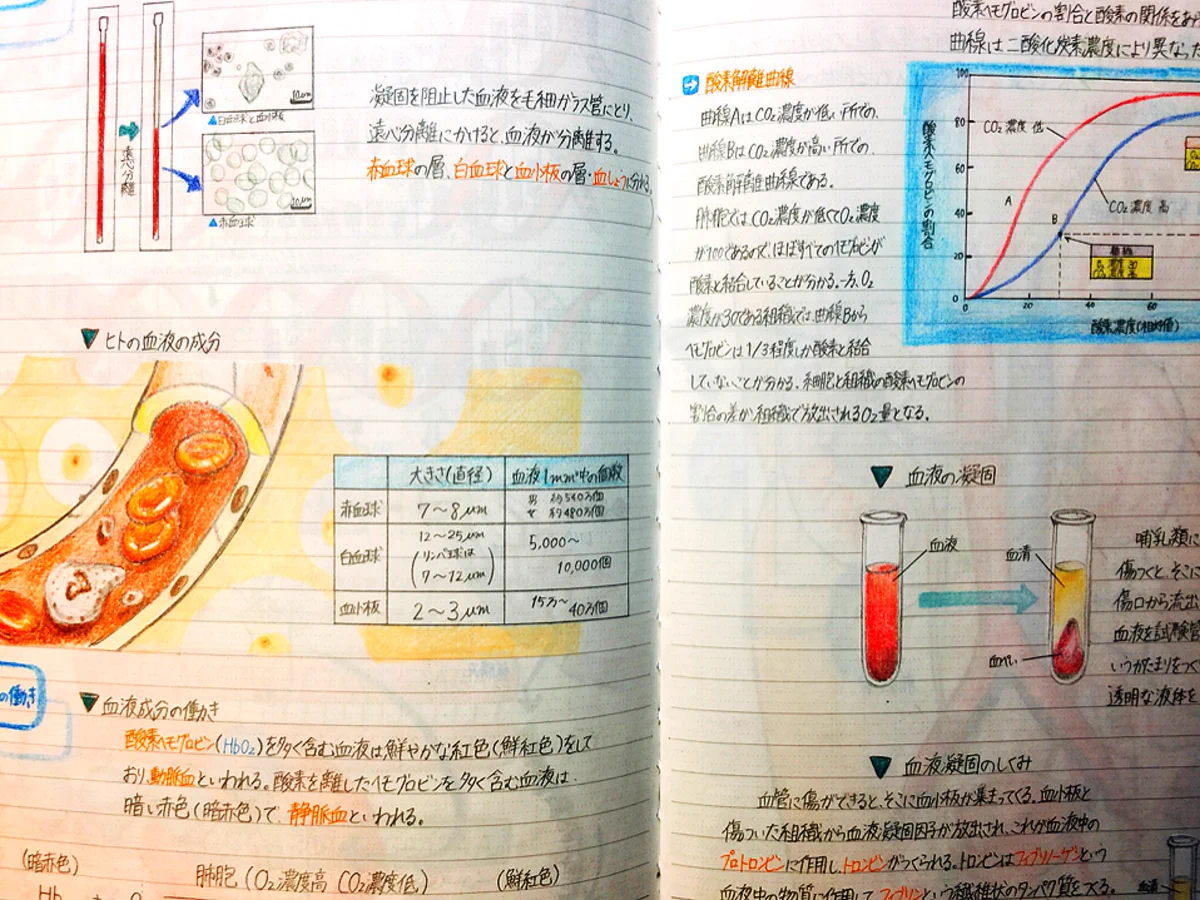 10μm
▲白血球と血小板
遠心分離
10μm
▲赤血球
凝固を阻止した血液を毛細ガラス管にとり、
遠心分離にかけると、血液が分離する。
赤血球の層、白血球と血小板の層・血しょうに分かれる。
▼ヒトの血液の成分
大きさ(直径) 血液1mm³中の個数
赤血球 7〜8μm 男 約540万個 女 約480万個
白血球 12〜25μm (リンパ球は 7〜12μm) 5,000〜10,000個
血小板 2〜3μm 15万〜40万個
の働き
▼血液成分の働き
酸素ヘモグロビン(HbO₂)を多く含む血液は鮮やかな紅色(鮮紅色)をして
おり、動脈血といわれる。酸素を離したヘモグロビンを多く含む血液は、
暗い赤色(暗赤色)で静脈血といわれる。
(暗赤色) 肺胞(O₂濃度高 CO₂濃度低) (鮮紅色)
Hb + O
酸素ヘモグロビンの割合と酸素の関係をあ
曲線は二酸化炭素濃度により異なった
酸素解離曲線
曲線AはCO₂濃度が低い所での、
曲線BはCO₂濃度が高い所での、
酸素解離曲線である。
肺胞では、CO₂濃度が低くてO₂濃度
が100であるので、ほぼすべてのヘモグロビンが
酸素と結合していることが分かる。一方、O₂
濃度が30である組織では、曲線Bから
ヘモグロビンは1/3程度しか酸素と結合
していないことが分かる。細胞と組織の酸素ヘモグロビンの
割合の差が組織で放出されるO₂量となる。
酸素ヘモグロビンの割合
100
80
60
40
20
0
CO₂濃度 低
A
B
CO₂濃度 高
組織
O₂濃度 30
0 20 40 60
酸素濃度(相対値)
▼血液の凝固
血液
血清
血ぺい
哺乳類に
傷つくと、そこに
傷口から流出
血液を試験管
いうかたまりをつく
透明な液体を
▼血液凝固のしくみ
血管に傷ができると、そこに血小板が集まってくる。血小板と
傷ついた組織から血液凝固因子が放出され、これが血液中の
プロトロンビンに作用し、トロンビンがつくられる。トロンビンはフィブリノーゲンという
血液中の物質に作用して、フィブリンという繊維状のタンパク質をつくる。
血清